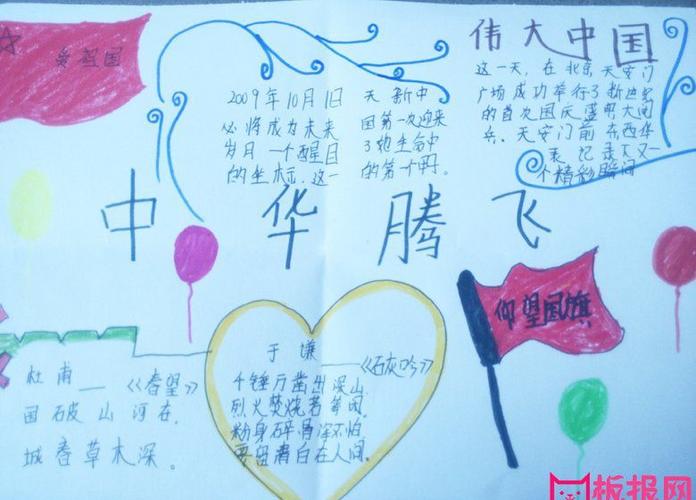 爱祖国
伟大中国
2009年10月1日
必将成为未来
岁月一个醒目
的坐标,这一
天新中
国第一次迎来
了她生命中
的第一个
这一天,在北京天安门
广场成功举行了新世纪
的首次国庆盛大阅
兵。天安门前东西华
表记录下又一
个精彩瞬间
中华腾飞
仰望国旗
杜甫——《春望》
国破山河在,
城春草木深。
于谦——《石灰吟》
千锤万凿出深山
烈火焚烧若等闲
粉身碎骨浑不怕
要留清白在人间。
板报网